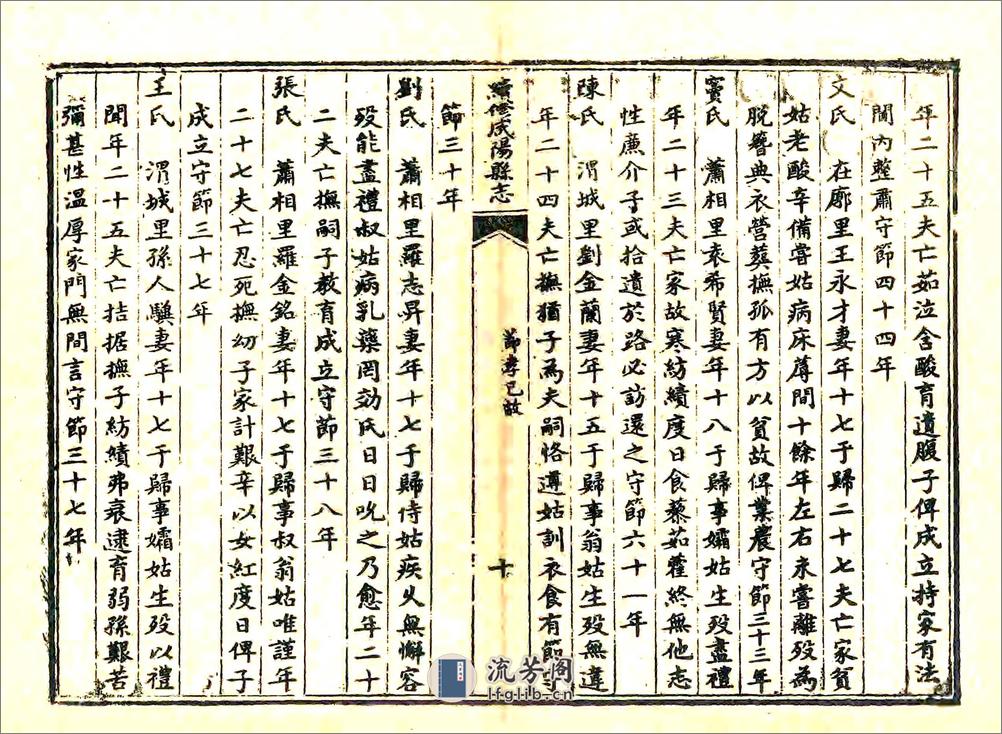 年二十五夫亡茹泣含酸育遺腹子俾成立持家有法
閫內整肅守節四十四年
文氏　在廓里王永才妻年十七于歸二十七夫亡家貧
姑老酸辛備嘗姑病床蓐間十餘年左右未嘗離歿為
脫簪典衣營葬撫孤有方以貧故俾業農守節三十三年
竇氏　蕭相里袁希賢妻年十八于歸事孀姑生歿盡禮
年二十三夫亡家故寒紡績度日食藜茹藿終無他志
性廉介子或拾遺於路必訪還之守節六十一年
陳氏　渭城里劉金蘭妻年十五于歸事翁姑生歿無違
年二十四夫亡撫猶子為夫嗣恪遵姑訓衣食有節守
節三十年
續修咸陽縣志
節孝已故
十
劉氏　蕭相里羅志昇妻年十七于歸侍姑疾久無懈容
歿能盡禮叔姑病乳藥罔効氏日日吮之乃愈年二十
二夫亡撫嗣子教育成立守節三十八年
張氏　蕭相里羅金銘妻年十七于歸事叔翁姑唯謹年
二十七夫亡忍死撫幼子家計艱辛以女紅度日俾子
成立守節三十七年
王氏　渭城里孫人驥妻年十七于歸事孀姑生歿以禮
聞年二十五夫亡拮据撫子紡績弗衰逮育弱孫艱苦
彌甚性溫厚家門無間言守節三十七年
流芳阁
lfglib.cn